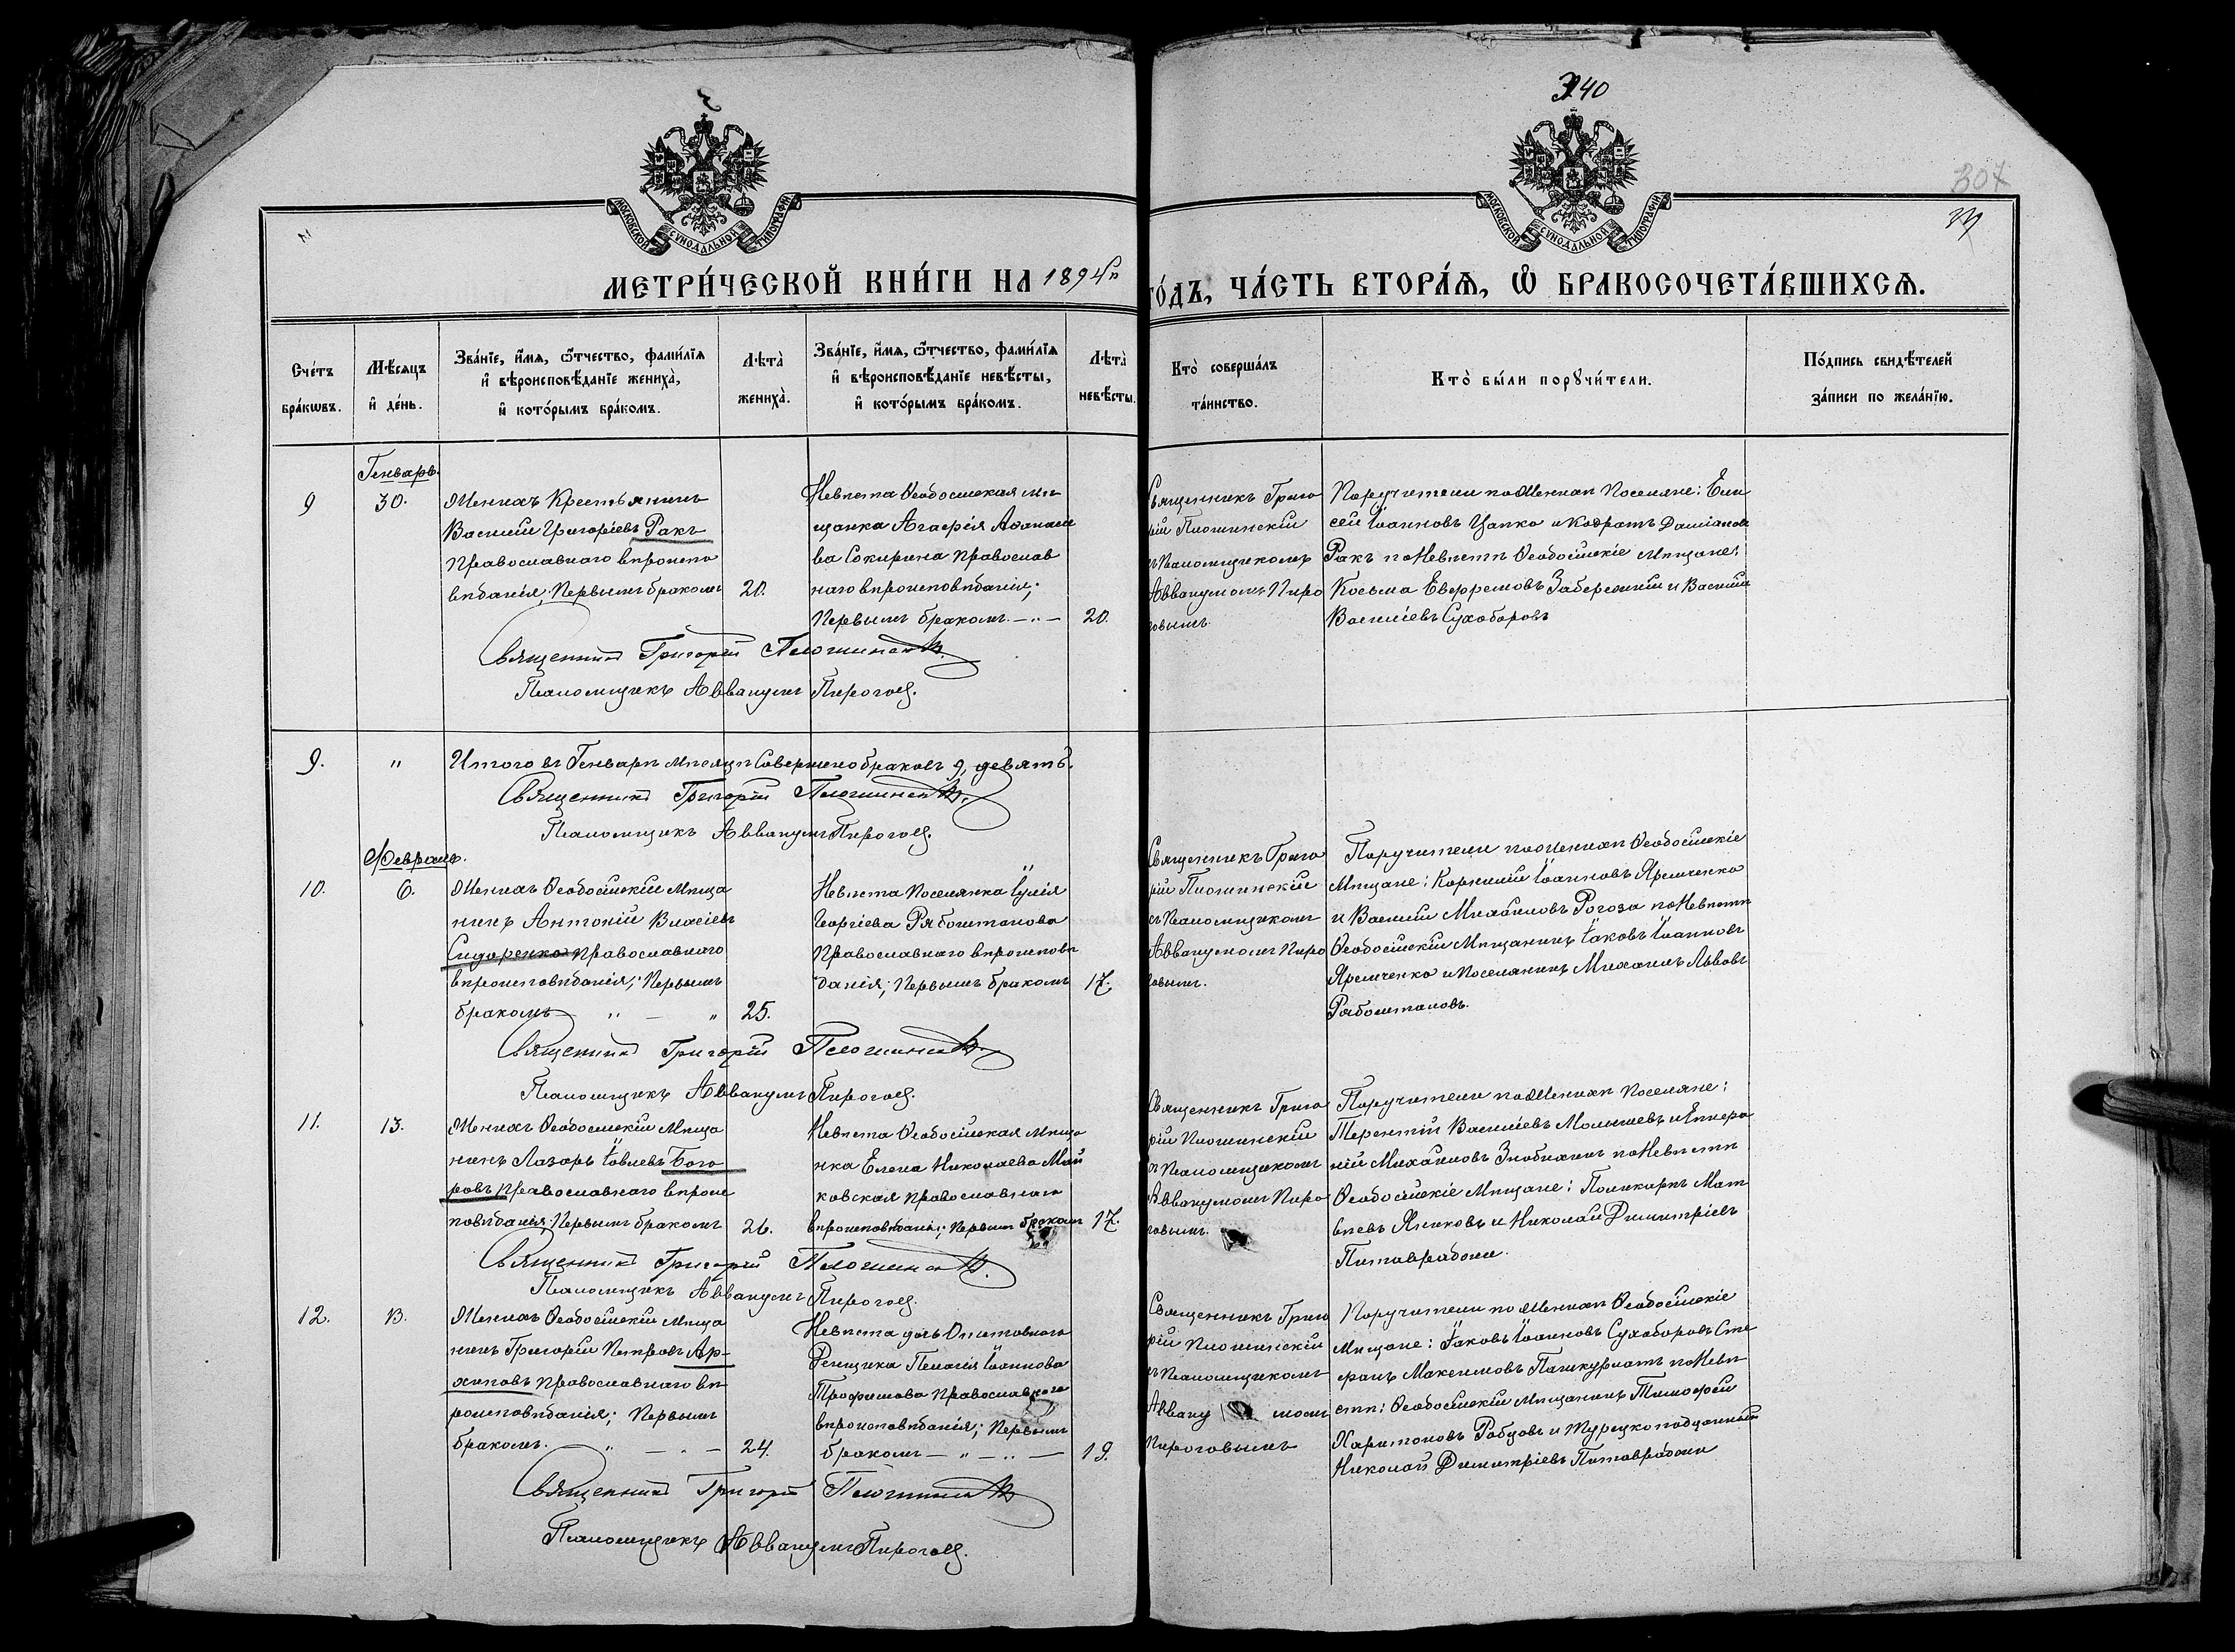 340
307
МОСКОВСКОЙ СѴНОДАЛЬНОЙ ТИПОГРАФІИ
МОСКОВСКОЙ СѴНОДАЛЬНОЙ ТИПОГРАФІИ
МЕТРИ́ЧЕСКОЙ КНИ́ГИ НА 1894й
ГО́ДЪ, ЧА́СТЬ ВТОРА́Ѧ, Ѡ҆ БРАКОСОЧЕТА́ВШИХСѦ.
Сче́тъ бра́кѡвъ.
Мѣ́сѧцъ и҆ де́нь.
Зва́нїе, и҆́мѧ, ѻ҆́тчество, фами́лїѧ
и҆ вѣроисповѣ́данїе жениха̀,
и҆ кото́рымъ бра́комъ.
Лѣта̀ жениха̀.
Зва́нїе, и҆́мѧ, ѻ҆́тчество, фами́лїѧ
и҆ вѣроисповѣ́данїе невѣ́сты,
и҆ кото́рымъ бра́комъ.
Лѣта̀ невѣ́сты.
Кто̀ соверша́лъ
та́инство.
Кто̀ бы́ли порꙋчи́тели.
По́дпись свидѣ́телей
за́писи по жела́нїю.
Генварь.
9
30.
Женихъ Крестьянинъ
Василій Григоріевъ Ракъ
Православнаго вѣроиспо
вѣданія; Первымъ бракомъ
20.
Невѣста Ѳеодосійская мѣ
щанка Агафія Аѳанасіе
ва Сокирина православ
наго вѣроисповѣданія;
Первымъ бракомъ. — „ —
20.
Священникъ Григо
рій Плошинскій
съ Псаломщикомъ
Аввакумомъ Пиро
говымъ.
Поручители по Женихѣ Поселяне: Ели
сей Іоанновъ Цапко и Кодратъ Даміановъ
Ракъ по Невѣстѣ Ѳеодосійскіе Мѣщане:
Косьма Евфремовъ Забережній и Василій
Василіевъ Сухоборовъ
Священникъ Григорій Плошинскій.
Псаломщикъ Аввакумъ Пироговъ.
9.
„
Итого въ Генварѣ мѣсяцѣ Совершено браковъ 9, девять.
Священникъ Григорій Плошинскій.
Псаломщикъ Аввакумъ Пироговъ.
Февраль.
10.
6.
Женихъ Ѳеодосійскій Мѣща
нинъ Антоній Власіевъ
Сидоренко православнаго
вѣроисповѣданія; Первымъ
бракомъ — „ — „
25.
Невѣста Поселянка Іулія
Георгіева Рябоштанова
Православнаго вѣроисповѣ
данія; Первымъ бракомъ
17.
Священникъ Григо
рій Плошинскій
съ Псаломщикомъ
Аввакумомъ Пиро
говымъ.
Поручители по Женихѣ Ѳеодосійскіе
Мѣщане: Корнилій Іоанновъ Яремченко
и Василій Михаиловъ Рогоза по Невѣстѣ
Ѳеодосійскій Мѣщанинъ Іаковъ Іоанновъ
Яремченко и Поселянинъ Михаилъ Львовъ
Рябоштановъ.
Священникъ Григорій Плошинскій.
Псаломщикъ Аввакумъ Пироговъ.
11.
13.
Женихъ Ѳеодосійскій Мѣща
нинъ Лазарь Іовлевъ Бого
ровъ православнаго вѣроис
повѣданія; Первымъ бракомъ
26.
Невѣста Ѳеодосійская Мѣща
нка Елена Николаева Май
ковская православнаго
вѣроисповѣданія; Первымъ бракомъ
17.
Священникъ Григо
рій Плошинскій
съ Псаломщикомъ
Аввакумомъ Пиро
говымъ.
Поручители по Женихѣ Поселяне:
Терентій Василіевъ Малышевъ и
ній Михаиловъ Знобихинъ по Невѣстѣ
Ѳеодосійскіе Мѣщане: Поликарпъ Мат
вѣевъ и Николай Димитріевъ
Священникъ Григорій Плошинскій.
Псаломщикъ Аввакумъ Пироговъ.
12.
13.
Женихъ Ѳеодосійскій Мѣща
нинъ Григорій Петровъ Ар-
хиповъ православнаго вѣ
роисповѣданія; Первымъ
бракомъ. „ — „ —
24.
Невѣста дочь Отставного
Пелагія Іоаннова
Трофимова православнаго
вѣроисповѣданія; Первымъ
бракомъ — „ — „ —
19.
Священникъ Григо
рій Плошинскій
съ Псаломщикомъ
Аввакумомъ
Пироговымъ
Поручители по Женихѣ Ѳеодосійскіе
Мѣщане: Іаковъ Іоанновъ Сухоборовъ Сте
фанъ Максимовъ по Невѣ
стѣ: Ѳеодосійскій мѣщанинъ Тимофей
Харитоновъ Рябцовъ и Турецко подданный
Николай Димитріевъ
Священникъ Григорій Плошинскій
Псаломщикъ Аввакумъ Пироговъ.